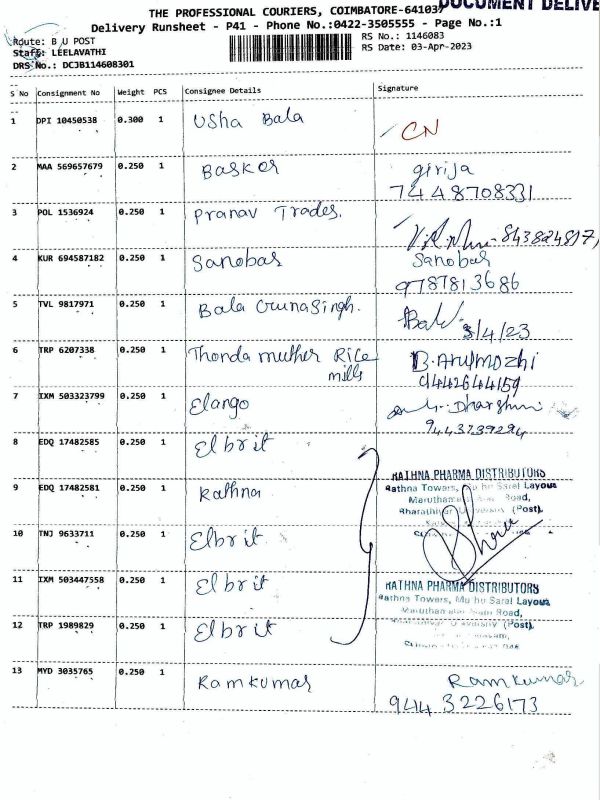 THE PROFESSIONAL COURIERS, COIMBATORE-641037
DOCUMENT DELIVE
Delivery Runsheet - P41 - Phone No.:0422-3505555 - Page No.:1
Route: B U POST
RS No.: 1146083
Staff: LEELAVATHI
RS Date: 03-Apr-2023
DRS No.: DCJB114608301
S No Consignment No Weight PCS Consignee Details Signature
1 DPI 10450538 0.300 1 Usha Bala CN
2 MAA 569657679 0.250 1 Basker girija
7448708331
3 POL 1536924 0.250 1 Pranav Trades.
4 KUR 694587182 0.250 1 Sanobar Sanobar
9787813686
5 TVL 9817971 0.250 1 Bala Gunasingh. 3/4/23
6 TRP 6207338 0.250 1 Thonda muther Rice B. Arulmozhi
mills 9442644159
7 IXM 503323799 0.250 1 Elango Dharshni
9443739294
8 EDQ 17482585 0.250 1 Elbrit
RATHNA PHARMA DISTRIBUTORS
9 EDQ 17482581 0.250 1 Rathna Rathna Towers, Layout
Road,
(Post),
10 TNJ 9633711 0.250 1 Elbrit
11 IXM 503447558 0.250 1 Elbrit RATHNA PHARMA DISTRIBUTORS
Rathna Towers, Layout
Road,
12 TRP 1989829 0.250 1 Elbrit (Post),
13 MYD 3035765 0.250 1 Ramkumar Ramkumar
944 3226173